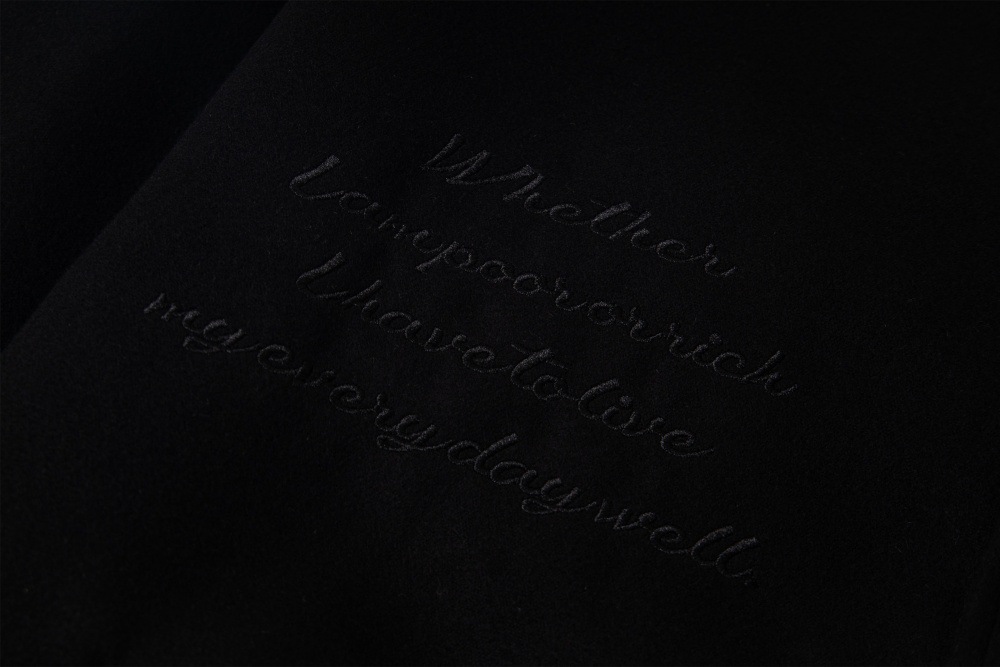 Whether
I am poor or rich
I have to live
my everyday well.